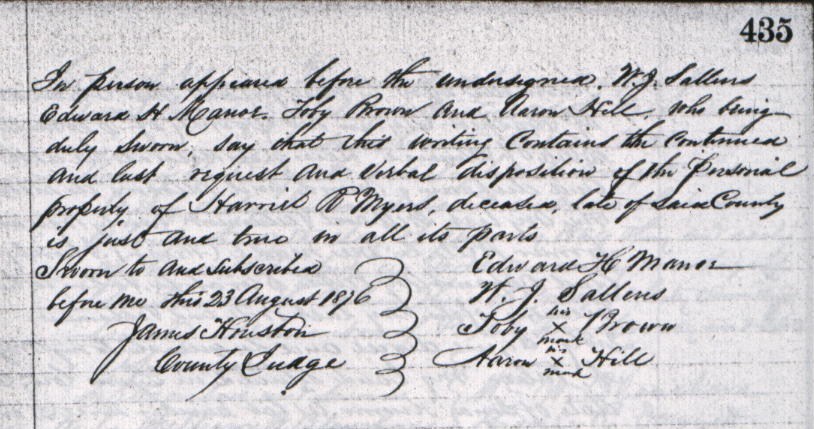 435
In person appeared before the undersigned, W. J. Sallens
Edward H Manor. Toby Brown and Aaron Hill, who being
duly Sworn, say that this writing Contains the Continued
and last request and Verbal disposition of the Personal
property of Harriet R Myers, deceased, late of said County
is just and true in all its parts
Sworn to and subscribed
before me this 23 August 1876
James Houston
County Judge
Edward H Manor
W. J. Sallens
his
Toby x Brown
mark
his
Aaron x Hill
mark